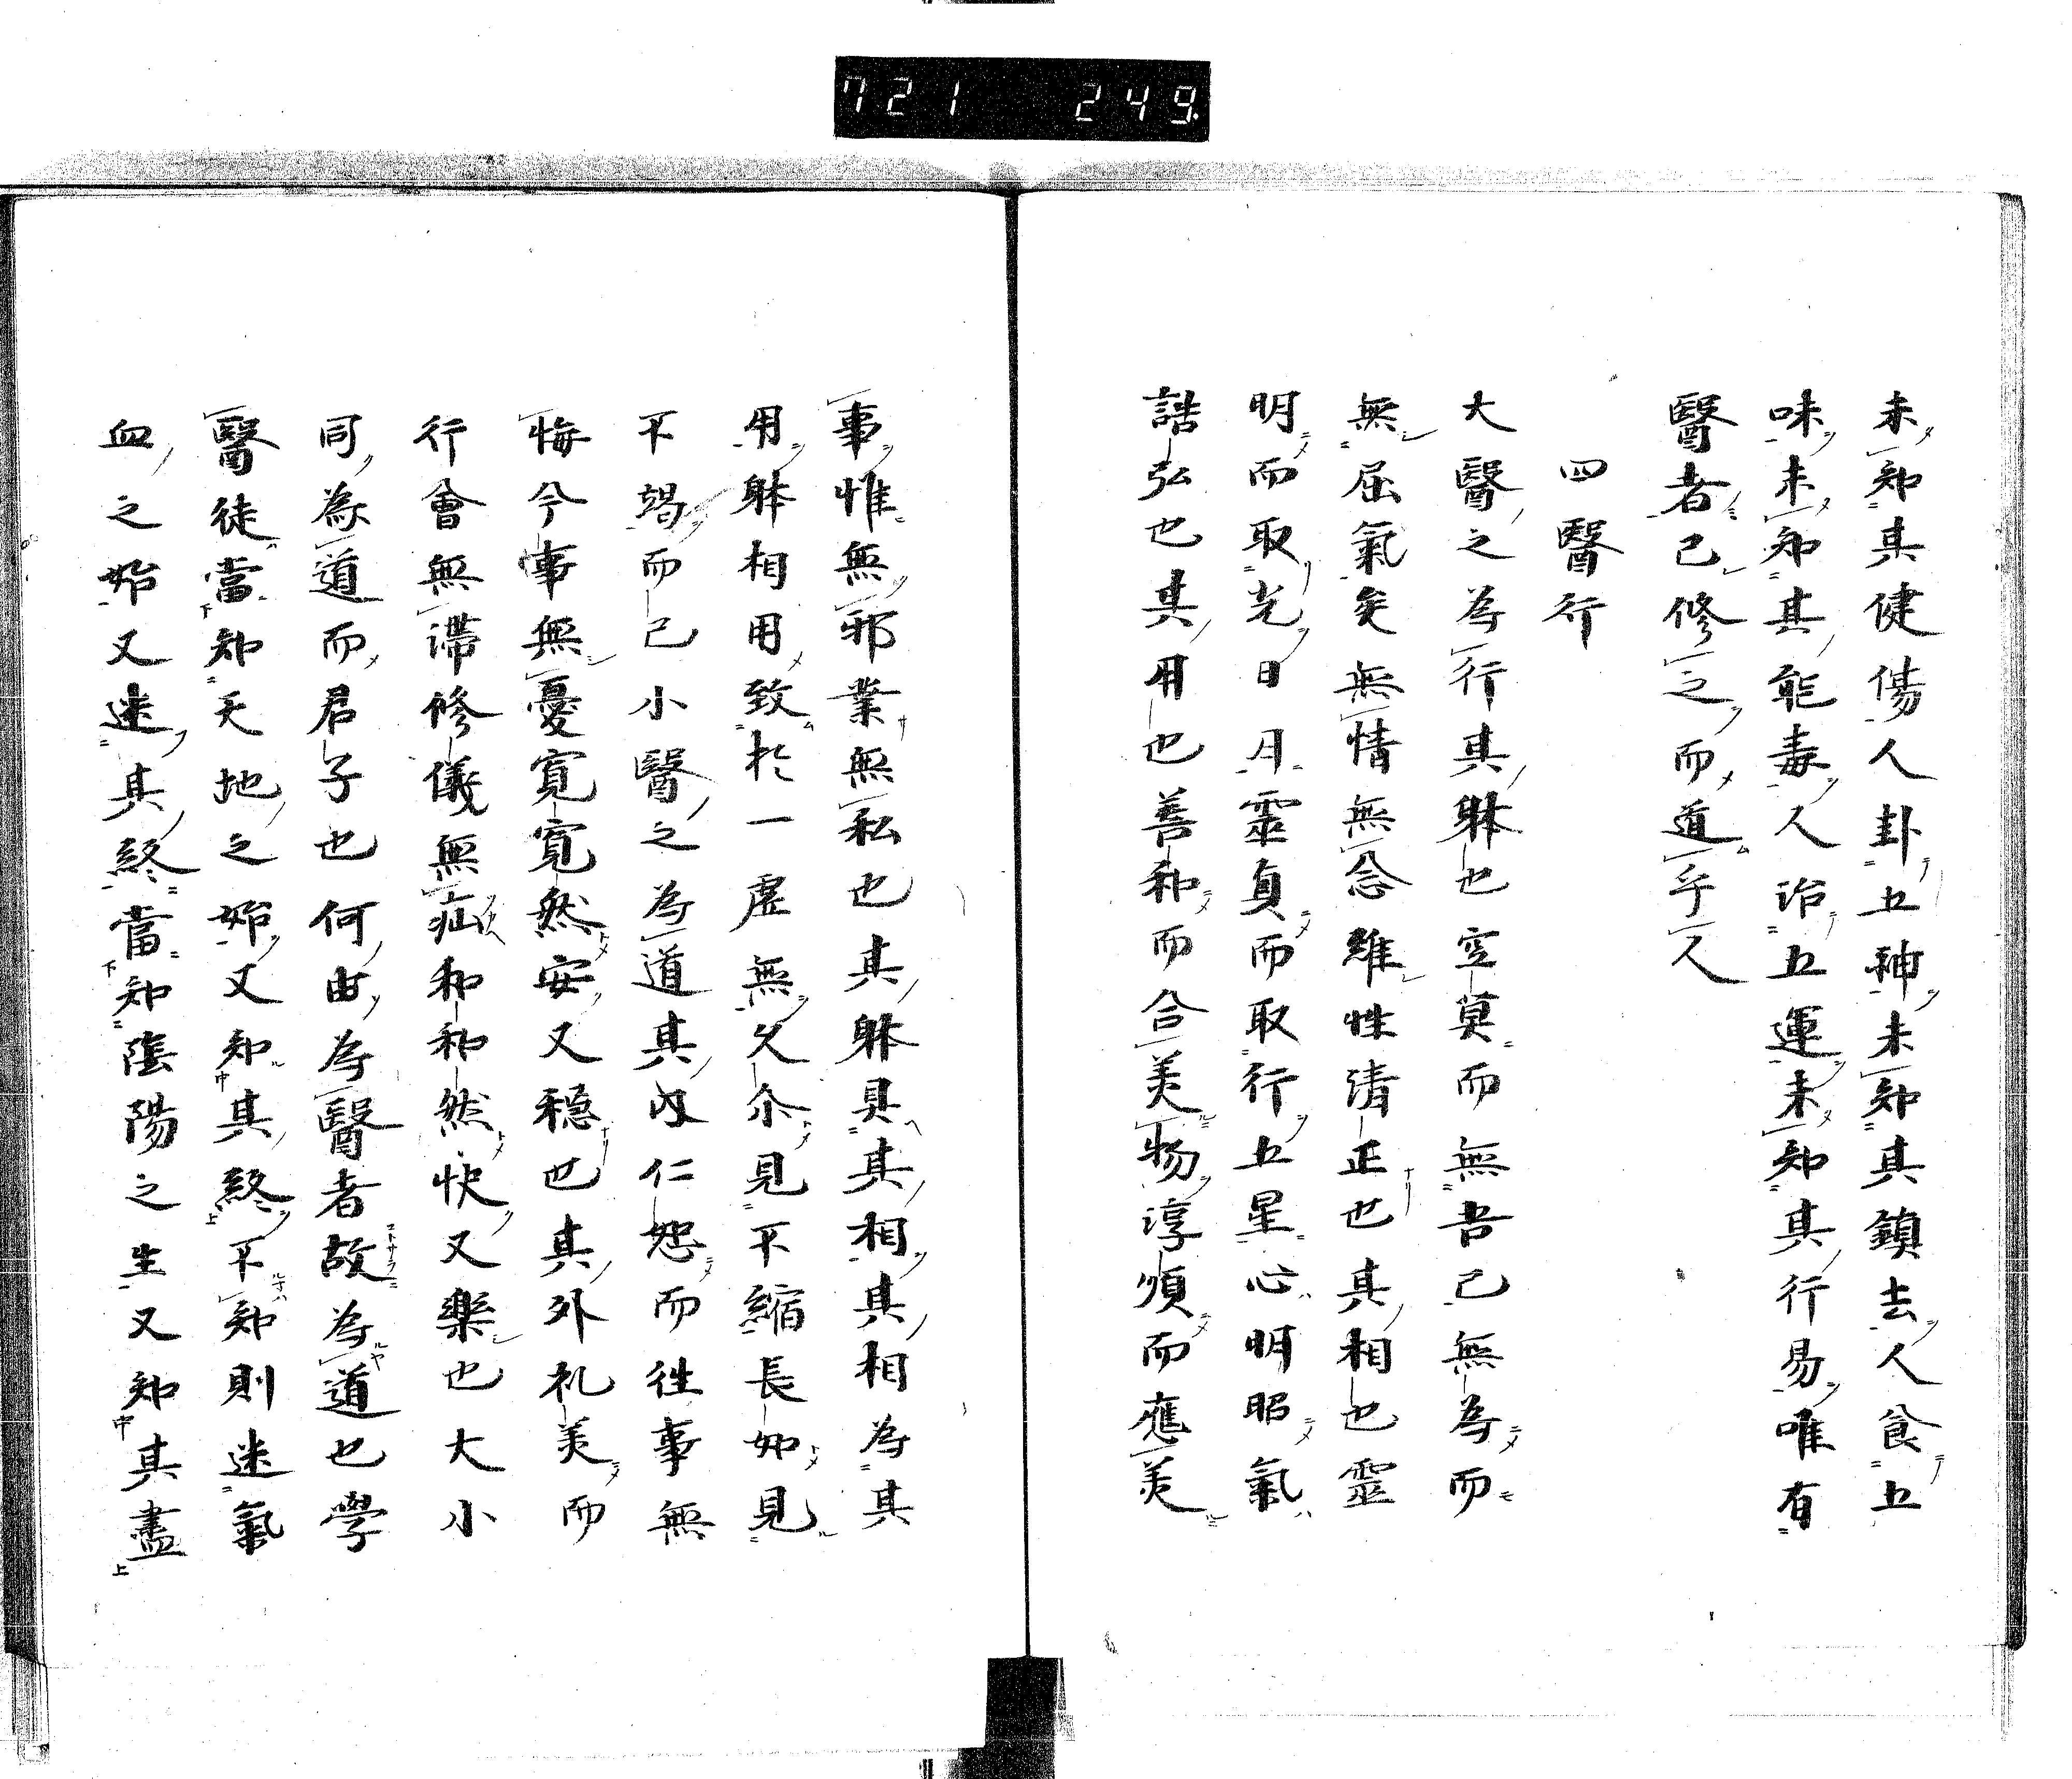 721 249
未知其健傷人卦五神未知其鎮去人食五
味未知其能毒人治五運未知其行易唯有
醫者已修之而道乎人
四醫行
大醫之為行其躰也空莫而無吾己無為而
無屈氣矣無情無念雖性清正也其相也靈
明而取光日月靈貞而取行五星心明昭氣
誥弘也其用也善和而合美物淳順而應美
事惟無邪業無私也其躰具其相其相為其
用躰相用致於一虛無久尒見不縮長如見
不竭而已小醫之為道其內仁恕而往事無
悔今事無憂寬寬然安又穏也其外礼美而
行會無滯修儀無疝和和然快又樂也大小
同為道而君子也何由為醫者故為道也學
醫徒當知天地之始又知其終不知則迷氣
血之始又迷其終當知陰陽之生又知其盡